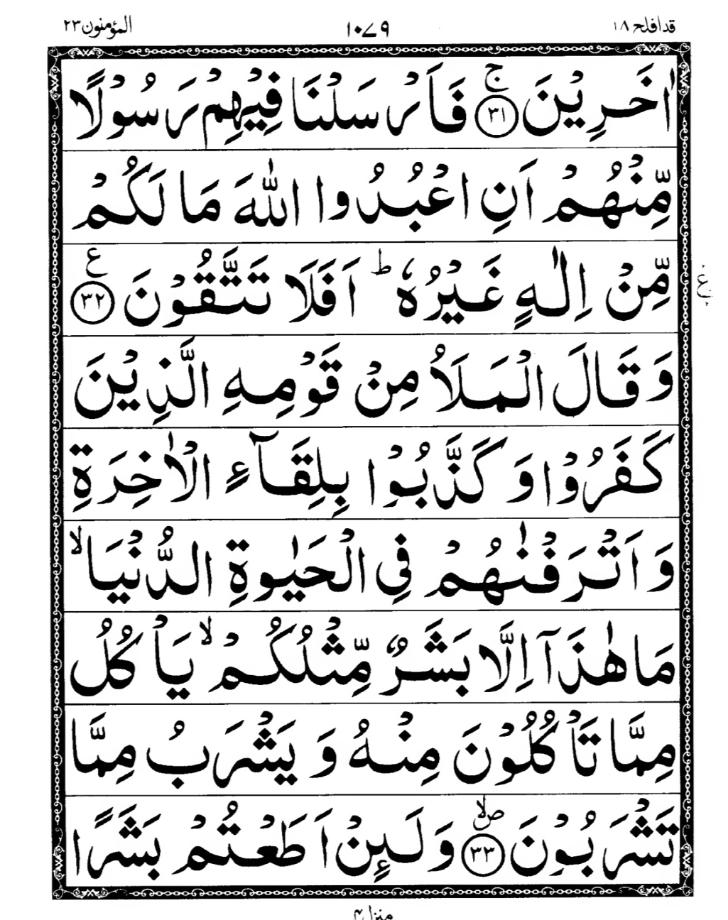 قد افلح ۱۸ ۱۰۷۹ المؤمنون ۲۳
اٰخَرِیْنَ ۚ﴿۳۱﴾ فَاَرْسَلْنَا فِیْهِمْ رَسُوْلًا
مِّنْهُمْ اَنِ اعْبُدُوا اللّٰهَ مَا لَكُمْ
مِّنْ اِلٰهٍ غَیْرُهٗ ؕ اَفَلَا تَتَّقُوْنَ ﴿۳۲﴾ ع
وَ قَالَ الْمَلَاُ مِنْ قَوْمِهِ الَّذِیْنَ
كَفَرُوْا وَ كَذَّبُوْا بِلِقَآءِ الْاٰخِرَةِ
وَ اَتْرَفْنٰهُمْ فِی الْحَیٰوةِ الدُّنْیَا ۙ
مَا هٰذَاۤ اِلَّا بَشَرٌ مِّثْلُكُمْ ۙ یَاْكُلُ
مِمَّا تَاْكُلُوْنَ مِنْهُ وَ یَشْرَبُ مِمَّا
تَشْرَبُوْنَ ﴿۳۳﴾ صلا وَ لَىِٕنْ اَطَعْتُمْ بَشَرًا
منزل ۴